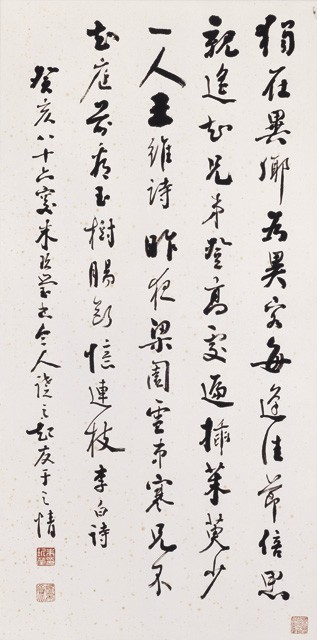 獨在異鄉為異客每逢佳節倍思
親遙知兄弟登高處遍插茱萸少
一人王維詩昨夜梁園雪弟寒兄不
知庭前看玉樹腸斷憶連枝李白詩
癸亥八十六叟朱玖瑩書令人讀之起友于之情